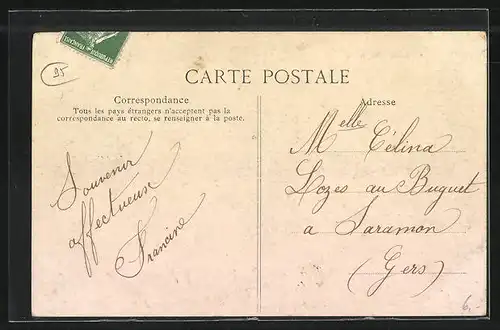 95
CARTE POSTALE
Correspondance
Tous les pays étrangers n'acceptent pas la
correspondance au recto, se renseigner à la poste.
Adresse
Souvenir
affectueuse
Francine
Melle Célina
Dozes au Buguet
a Saramon
(Gers)
6.-